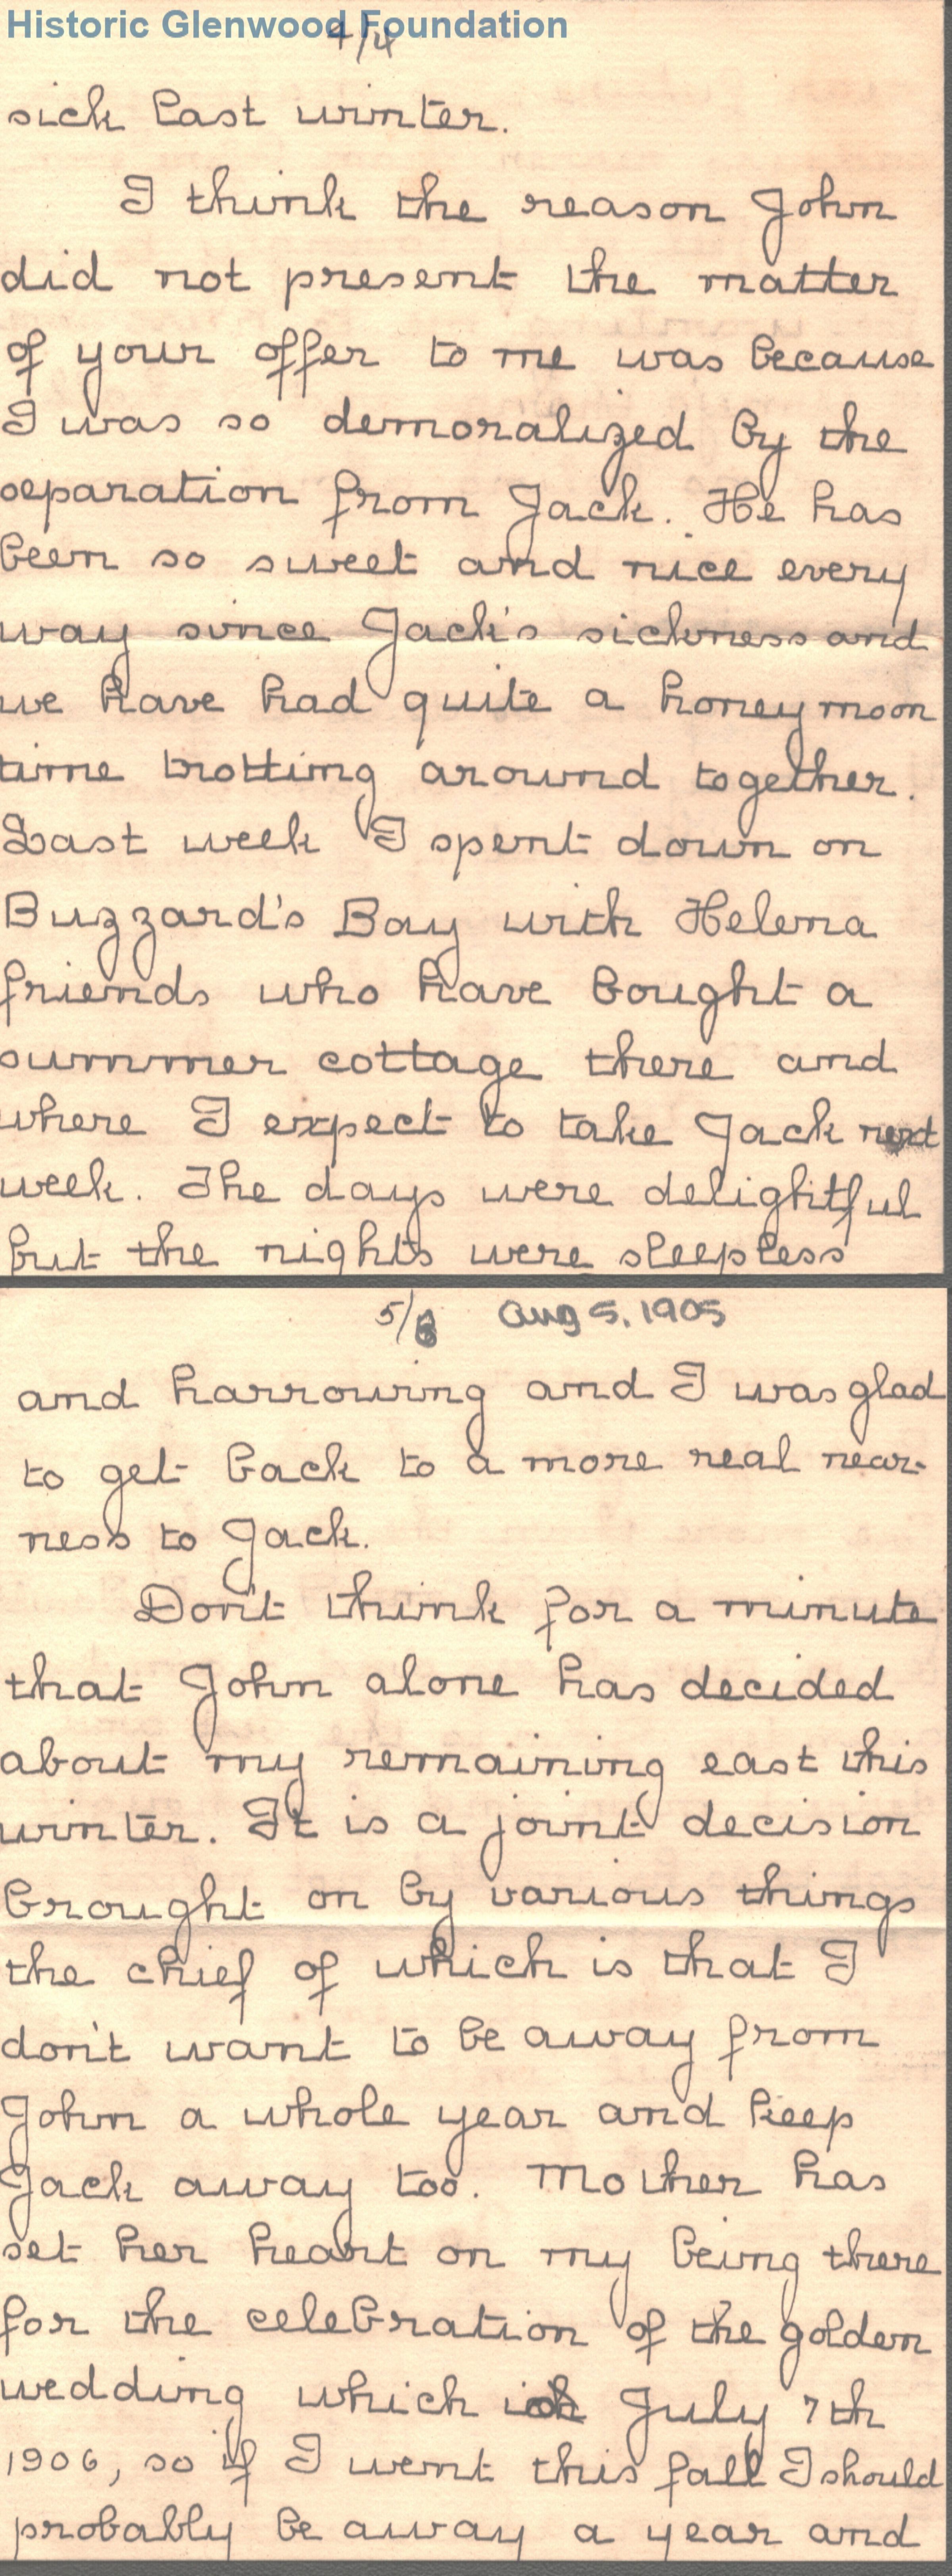 Historic Glenwood Foundation
4/4
sick last winter.
I think the reason John
did not present the matter
of your offer to me was because
I was so demoralized by the
separation from Jack. He has
been so sweet and nice every
way since Jack's sickness and
we have had quite a honeymoon
time trotting around together.
Last week I spent down on
Buzzard's Bay with Helena
friends who have bought a
summer cottage there and
where I expect to take Jack next
week. The days were delightful
but the nights were sleepless
5/ Aug 5, 1905
and harrowing and I was glad
to get back to a more real near-
ness to Jack.
Don't think for a minute
that John alone has decided
about my remaining east this
winter. It is a joint decision
brought on by various things
the chief of which is that I
don't want to be away from
John a whole year and keep
Jack away too. Mother has
set her heart on my being there
for the celebration of the golden
wedding which July 7th
1906, so if I went this fall I should
probably be away a year and